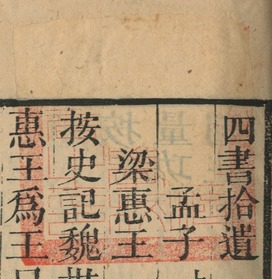 四書拾遺
孟子
梁惠王
按史記魏
惠王爲王